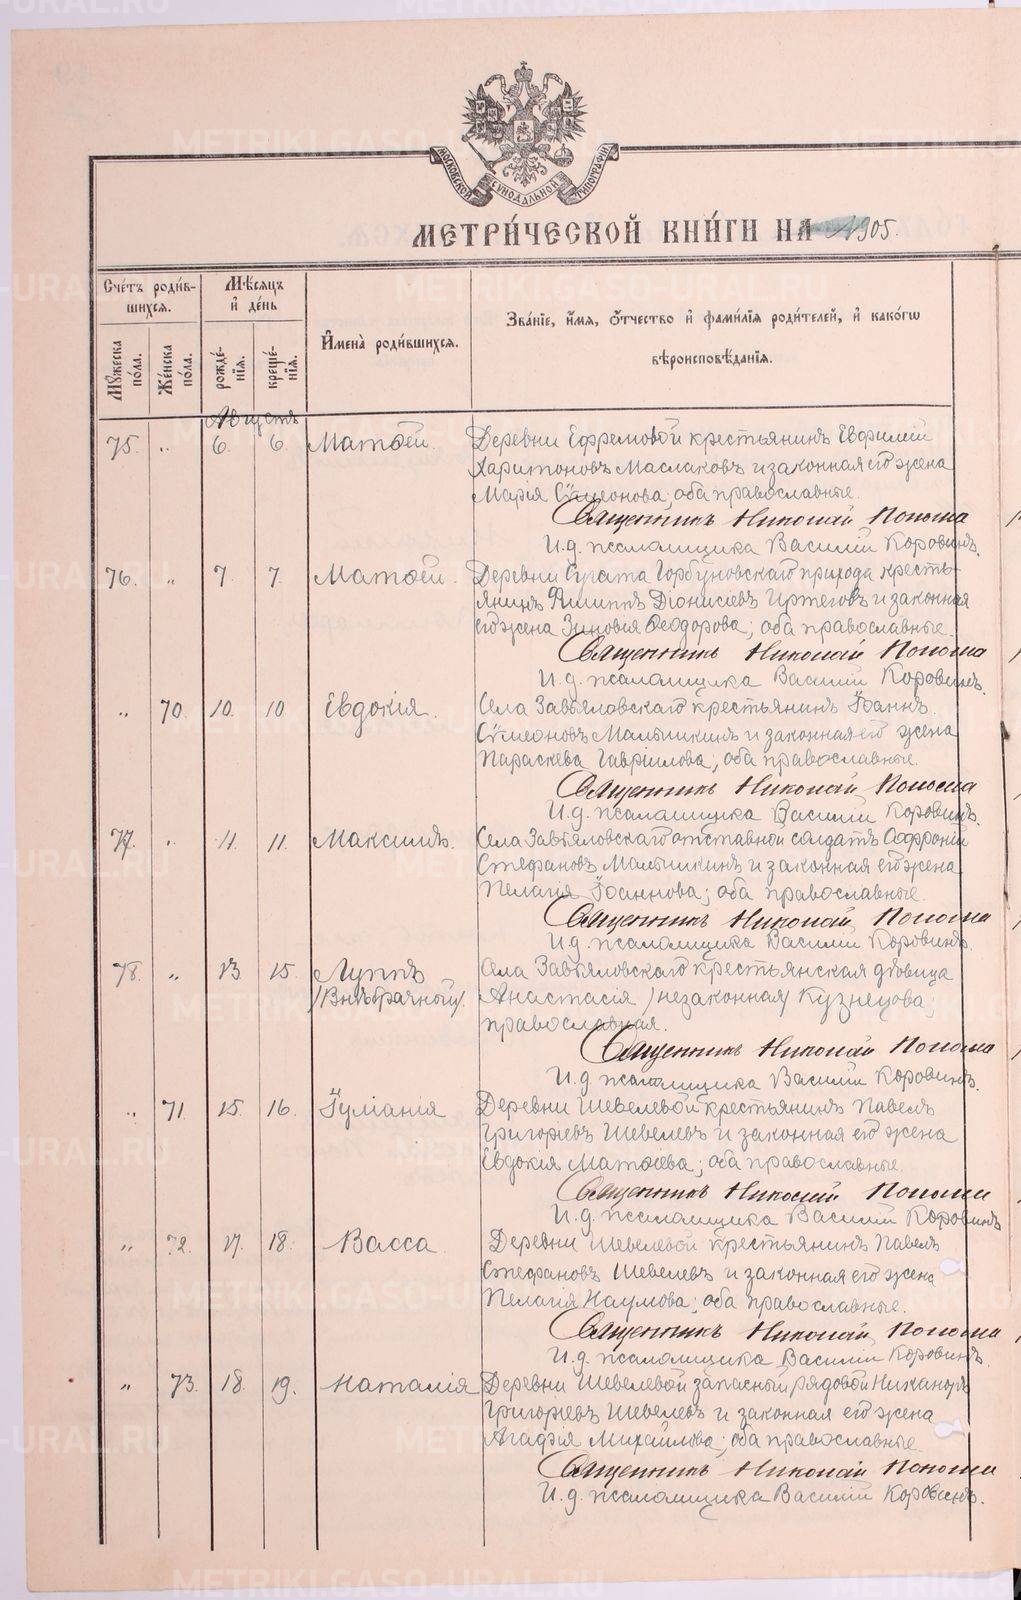 МОСКОВСКОЙ СѴНОДАЛЬНОЙ ТИПОГРАФІИ
МЕТРИ́ЧЕСКОЙ КНИ́ГИ НА 1905.
Счётъ роди́в-
шихся.
Мѣсяцъ
и҆ де́нь
Мꙋ́жеска
по́ла.
Же́нска
по́ла.
рожде́-
нїя.
креще́-
нїя.
И҆мена̀ роди́вшихся.
Зва́нїе, и҆́мя, ѻ҆́тчество и҆ фами́лїя роди́телей, и҆ како́гѡ
вѣроисповѣ́данїя.
Августъ
75. „ 6. 6. Матѳей. Деревни Ефремовой крестьянинъ Евфимій
Харитоновъ Маслаковъ и законная его жена
Марія Сѷмеонова; оба православные.
Священникъ Николай
И.д. псаломщика Василій Коровинъ.
76. „ 7. 7. Матѳей. Деревни Сугата Горбуновскаго прихода кресть-
янинъ Филиппъ Діонисіевъ Иртеговъ и законная
его жена Зиновія Ѳеодорова; оба православные.
Священникъ Николай
И.д. псаломщика Василій Коровинъ.
„ 70. 10. 10 Евдокія. Села Завьяловскаго крестьянинъ Іоаннъ
Сѷмеоновъ Малышкинъ и законная его жена
Параскева Гавріилова; оба православные.
Священникъ Николай
И.д. псаломщика Василій Коровинъ.
77. „ 11. 11. Максимъ. Села Завьяловскаго отставной солдатъ Софроній
Стефановъ Малышкинъ и законная его жена
Пелагія Іоаннова; оба православные.
Священникъ Николай
И.д. псаломщика Василій Коровинъ.
78. „ 13 15. Луппъ Села Завьяловскаго крестьянская дѣвица
/Внѣбрачный/. Анастасія /незаконная/ Кузнецова;
православная.
Священникъ Николай
И.д. псаломщика Василій Коровинъ.
„ 71. 15. 16. Іуліанія Деревни Шевелевой крестьянинъ Павелъ
Григоріевъ Шевелевъ и законная его жена
Евдокія Матѳеева; оба православные.
Священникъ Николай
И.д. псаломщика Василій Коровинъ
„ 72. 17. 18. Васса Деревни Шевелевой крестьянинъ Павелъ
Стефановъ Шевелевъ и законная его жена
Пелагія Наумова; оба православные.
Священникъ Николай
И.д. псаломщика Василій Коровинъ.
„ 73. 18. 19. Наталія Деревни Шевелевой запасный рядовой Никаноръ
Григоріевъ Шевелевъ и законная его жена
Агафія Михайлова; оба православные.
Священникъ Николай
И.д. псаломщика Василій Коровинъ.
METRIKI.GASO-URAL.RU